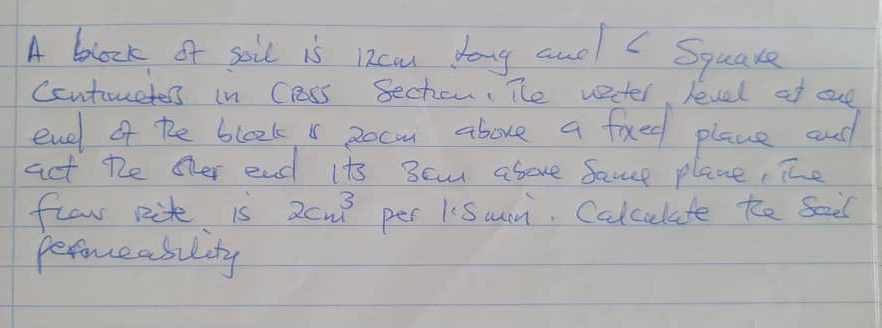 A block of soil is 12cm long and 6 Square
Centimeters in Cross Section. The water level at one
end of the block is 20cm above a fixed plane and
at the other end its 3cm above Same plane. The
flow rate is 2cm³ per 1.5 min. Calculate the Soil
permeability